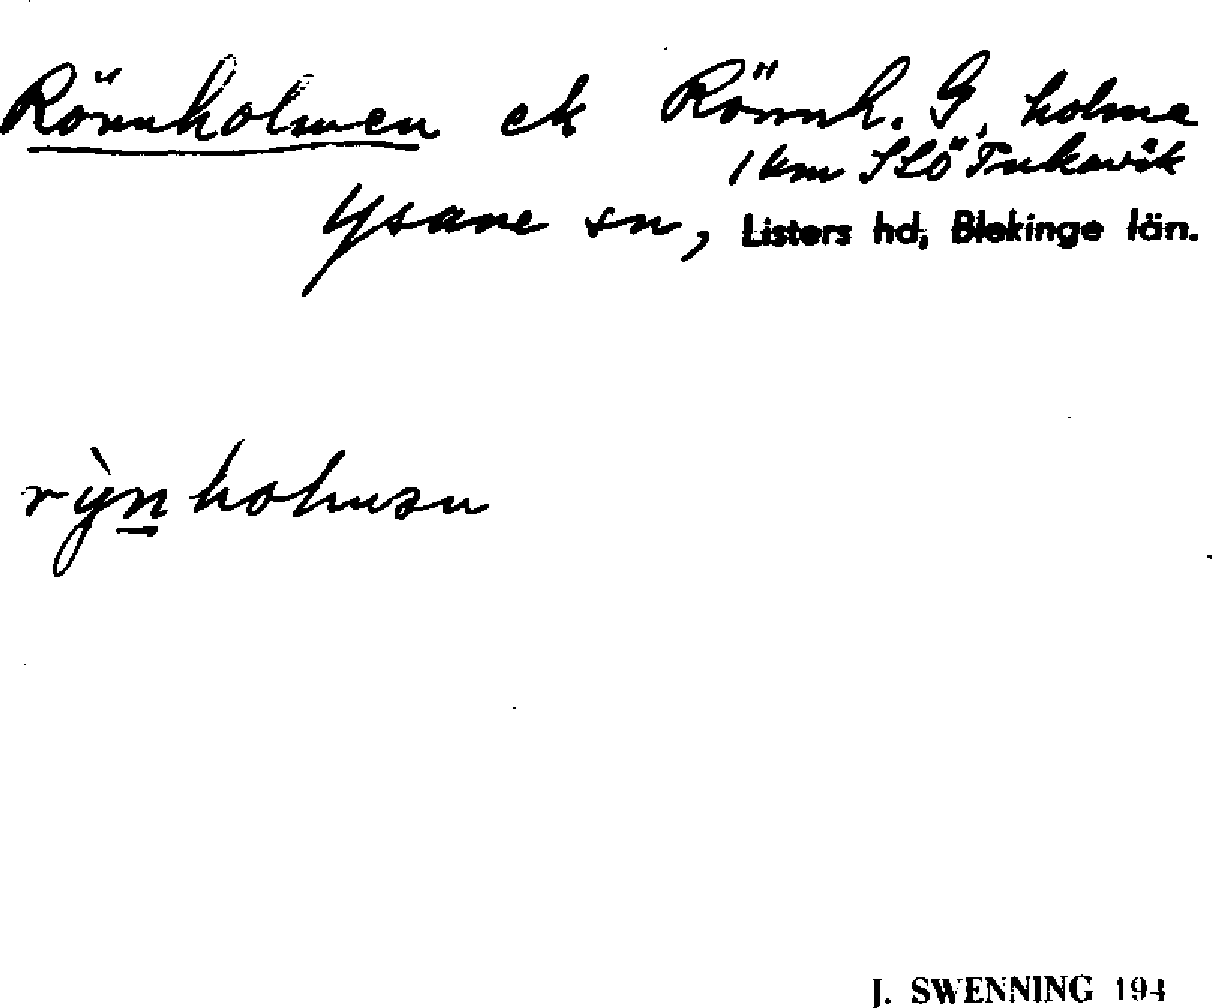 Rönnholmen ek Rönnh. G, holme
1 km SSÖ Torkavik
Ysane sn, Listers hd, Blekinge län.
rỳnholmən
J. SWENNING 194